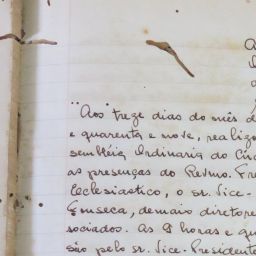 "Aos treze dias do mês d
e quarenta e nove, realizo
sembléia Ordinaria do Circ
as presenças do Revmo. Fre
Eclesiastico, o sr. Vice-
Fonseca, demais diretore
sociados. As 8 horas e qu
são pelo sr. Vice-Presidente